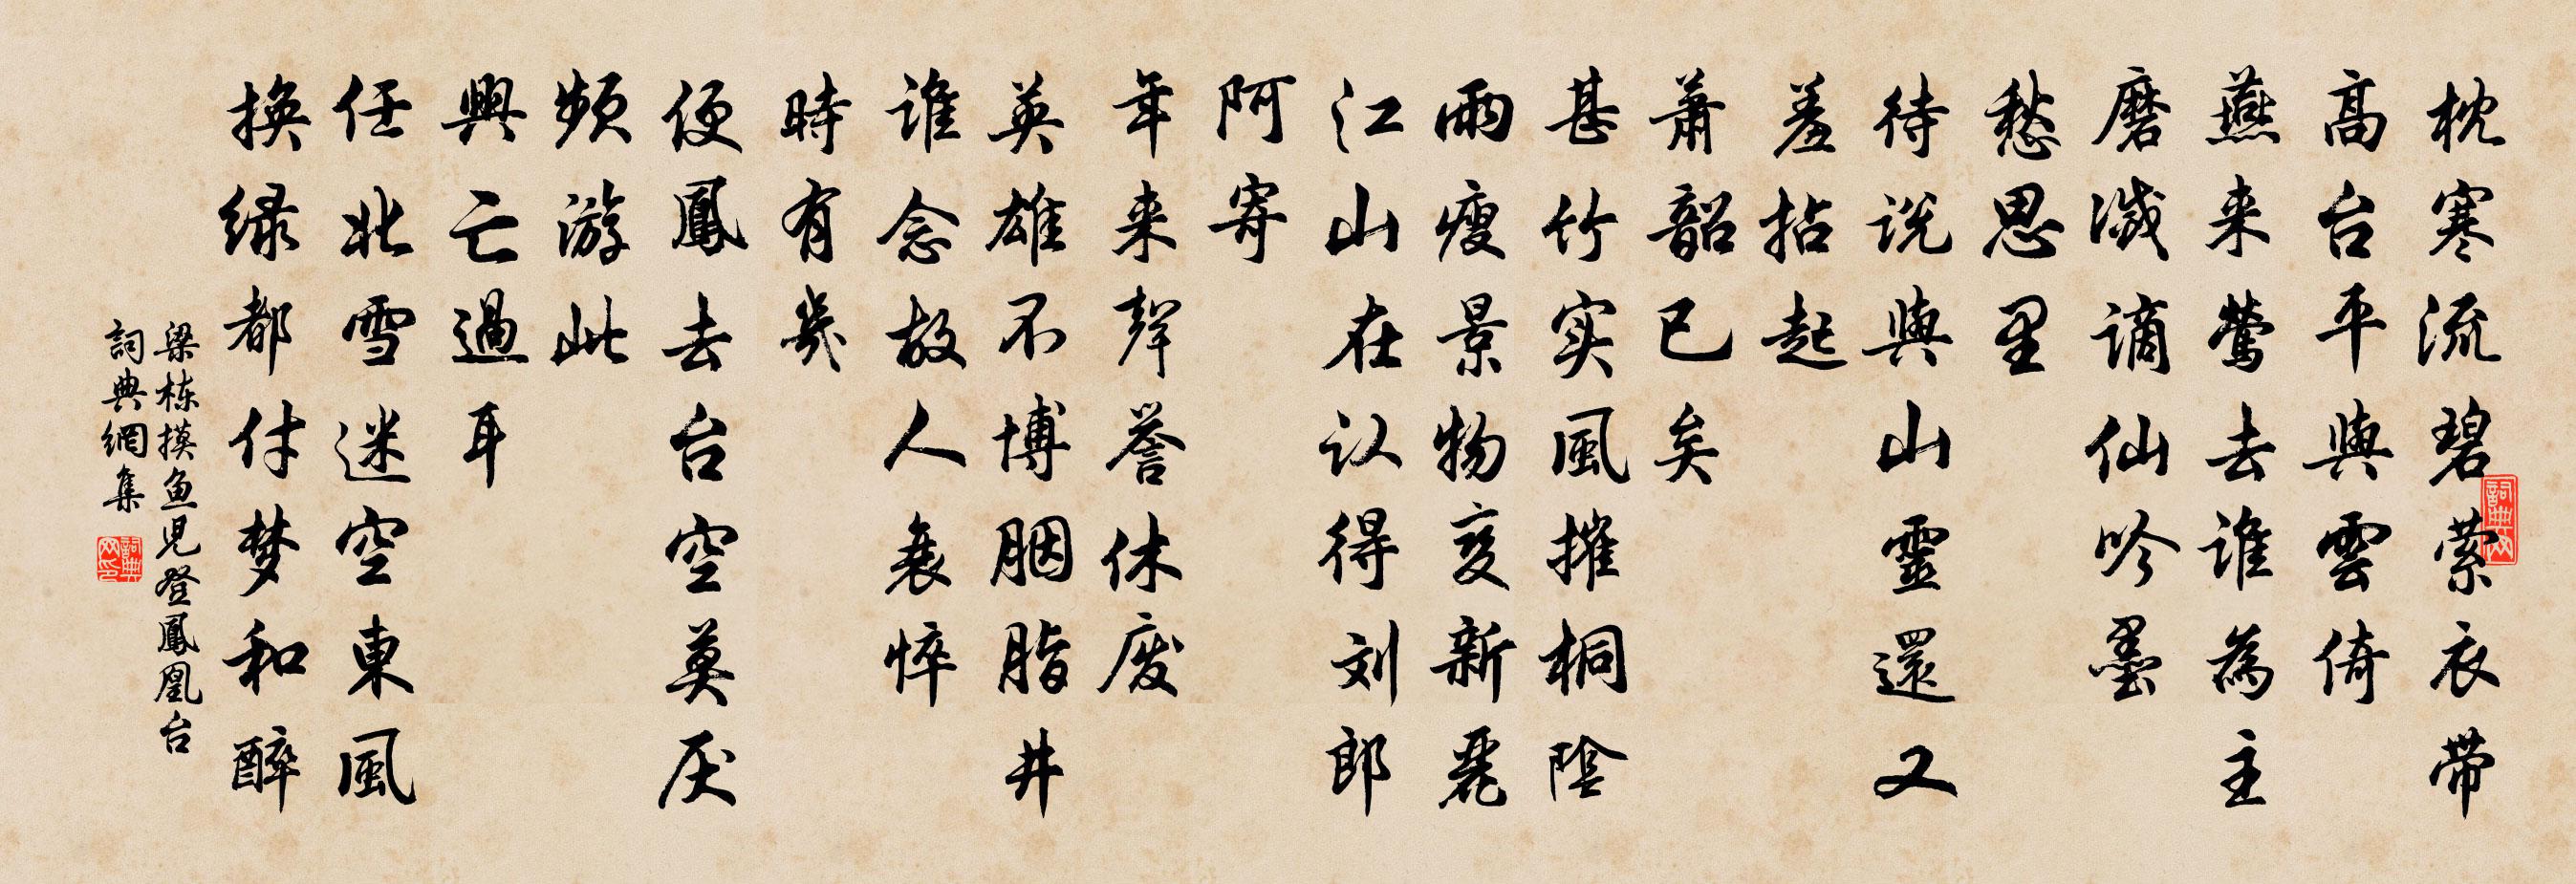 枕寒流碧萦衣带
高台平與雲倚
燕来莺去谁為主
磨灭谪仙吟墨
愁思里
待说與山靈還又
羞拈起
萧韶已矣
甚竹实風摧桐陰
雨瘦景物变新麗
江山在认得刘郎
阿寄
年来聲誉休废
英雄不博胭脂井
谁念故人衰悴
時有幾
便鳳去台空莫厌
频游此
興亡過耳
任北雪迷空東風
换绿都付梦和醉
梁栋摸鱼児登鳳凰台
詞典網集
詞典网
詞典网印